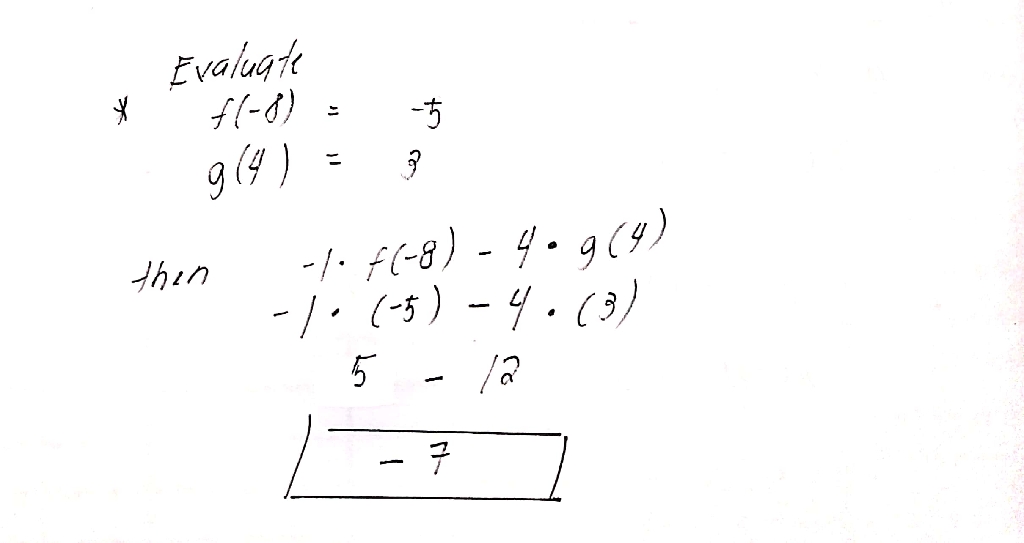 Evaluate
* f(-8) = -5
g(4) = 3
then -1· f(-8) - 4· g(4)
-1· (-5) - 4· (3)
5 - 12
- 7